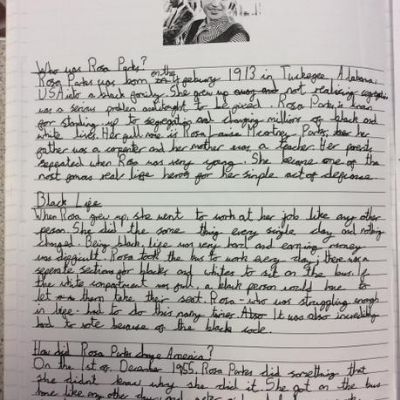 Who was Rosa Parks?
Rosa Parks was born on the 4 february 1913 in Tuskegee, Alabama,
USA into a black family. She grew up not realising segregation
was a serious problem and ought to be fixed. Rosa Parks is known
for standing up to segregation and changing millions of black and
white lives. Her full name is Rosa Louise Parks, her
father was a carpenter and her mother was a teacher. Her parents
seperated when Rosa was very young. She became one of the
most famous real life heros for her simple act of defiance
Black Life
When Rosa grew up, she went to work at her job like any other
person. She did the same thing every single day and nothing
changed. Being black, life was very hard and earning money
was difficult. Rosa took the bus to work every day; there was a
seperate section for blacks and whites to sit on the bus. If
the white compartment was full, a black person would have to
let them take their seat. Rosa - who was struggling enough
in life - had to do this many times. Also It was also incredibly
hard to vote because of the black code.
How did Rosa Parks change America?
On the 1st of December 1955, Rosa Parks did something that
she didn't know why she did it. She got on the bus
home like any other day, and